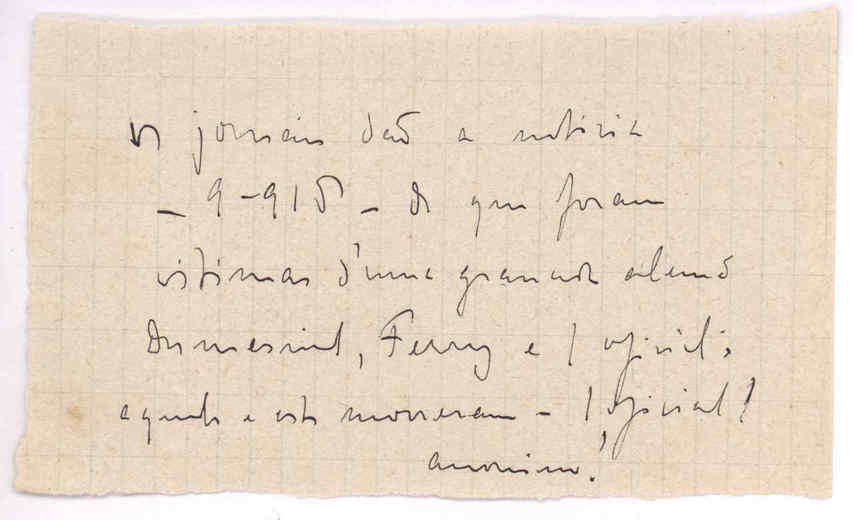 Os jornais dão a noticia
– 9-918 – de que foram
vitimas d'uma granada alemã
Dumesnil, Ferry e 1 oficial;
aquele e este morreram – 1 oficial!
anonimo!